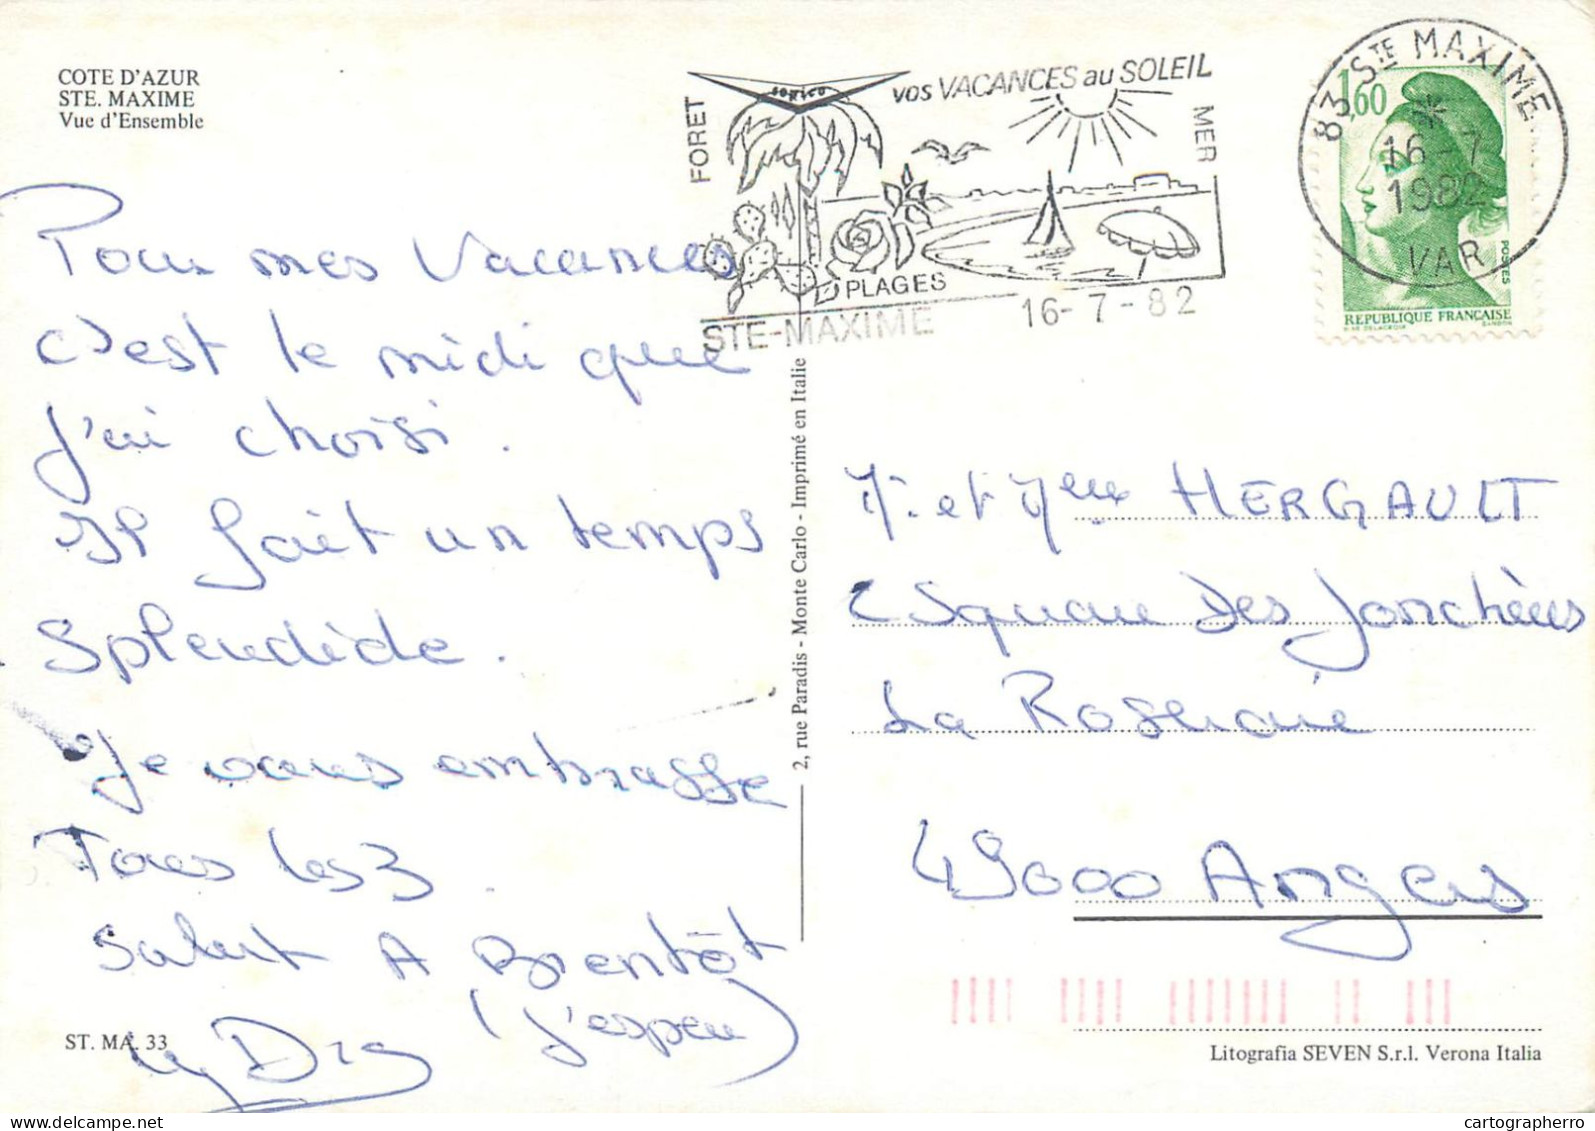 COTE D'AZUR
STE. MAXIME
Vue d'Ensemble
Pour mes Vacances
c'est le midi que
j'ai choisi.
Il fait un temps
Splendide.
Je vous embrasse
Tous les 3
Salut A Bientôt
(j'espère)
ST. MA. 33
FORET
vos VACANCES au SOLEIL
MER
PLAGES
STE-MAXIME
16-7-82
83 STE MAXIME
16-7
1982
VAR
1,60
POSTES
REPUBLIQUE FRANÇAISE
2, rue Paradis - Monte Carlo - Imprimé en Italie
Mr et Mme HERGAULT
2 Square des Jonchères
La Roseraie
49000 Angers
Litografia SEVEN S.r.l. Verona Italia
cartographerro